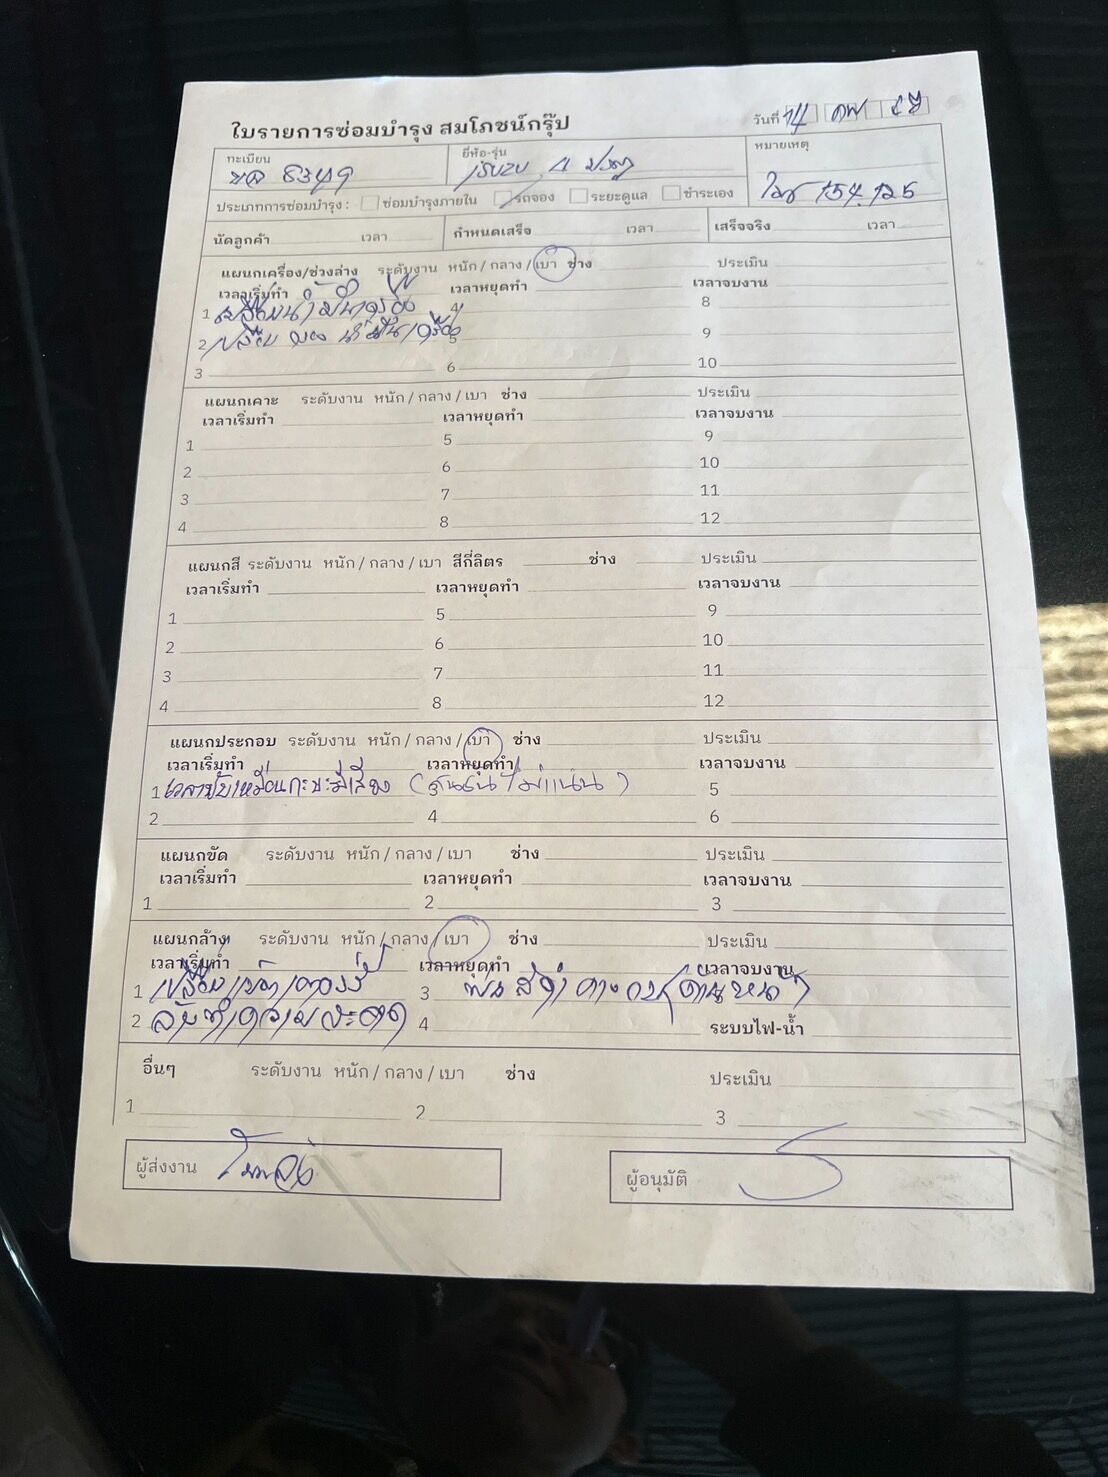 ใบรายการซ่อมบำรุง สมโภชน์กรุ๊ป
วันที่ 14
ทะเบียน
ยี่ห้อ-รุ่น
หมายเหตุ
ISUZU 4 ประตู
154,125
ประเภทการซ่อมบำรุง : ซ่อมบำรุงภายใน รถจอง ระยะดูแล ชำระเอง
นัดลูกค้า เวลา กำหนดเสร็จ เวลา เสร็จจริง เวลา
แผนกเครื่อง/ช่วงล่าง ระดับงาน หนัก / กลาง / เบา ช่าง ประเมิน
เวลาเริ่มทำ เวลาหยุดทำ เวลาจบงาน
1 เปลี่ยนน้ำมันเครื่อง 4 8
2 น้ำมันเครื่อง 5 9
3 6 10
แผนกเคาะ ระดับงาน หนัก / กลาง / เบา ช่าง ประเมิน
เวลาเริ่มทำ เวลาหยุดทำ เวลาจบงาน
1 5 9
2 6 10
3 7 11
4 8 12
แผนกสี ระดับงาน หนัก / กลาง / เบา สีกี่ลิตร ช่าง ประเมิน
เวลาเริ่มทำ เวลาหยุดทำ เวลาจบงาน
1 5 9
2 6 10
3 7 11
4 8 12
แผนกประกอบ ระดับงาน หนัก / กลาง / เบา ช่าง ประเมิน
เวลาเริ่มทำ เวลาหยุดทำ เวลาจบงาน
1 เวลาขับเหมือนกะบะมีเสียง ( ไม่แน่น ) 5
2 4 6
แผนกขัด ระดับงาน หนัก / กลาง / เบา ช่าง ประเมิน
เวลาเริ่มทำ เวลาหยุดทำ เวลาจบงาน
1 2 3
แผนกล้าง ระดับงาน หนัก / กลาง / เบา ช่าง ประเมิน
เวลาเริ่มทำ เวลาหยุดทำ เวลาจบงาน
1 เปลี่ยนแบตเตอรี่ 3 พ่นสีดำ
2 ล้างทำความสะอาด 4 ระบบไฟ-น้ำ
อื่นๆ ระดับงาน หนัก / กลาง / เบา ช่าง ประเมิน
1 2 3
ผู้ส่งงาน
ผู้อนุมัติ